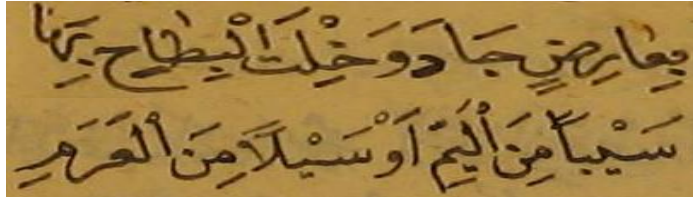 بِعَارِضٍ جَادَ وَخِلْتَ الْبِطَاحَ بِهَا
سَيْباً مِنَ الْيَمِّ اَوْ سَيْلاً مِنَ الْعَرَمِ